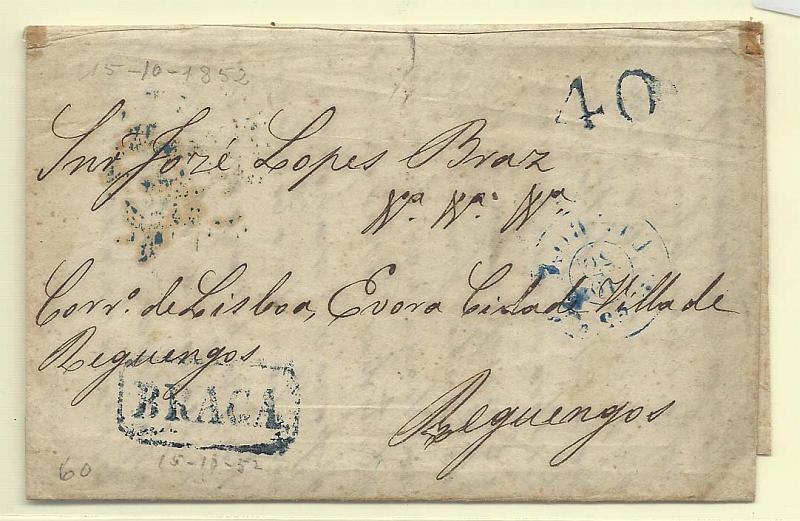 15-10-1852
40
Snr José Lopes Braz
Nª. Nª. Nª
Corrº. de Lisboa, Evora Cidade Villa de
Reguengos
BRAGA
Reguengos
15-10-52
60